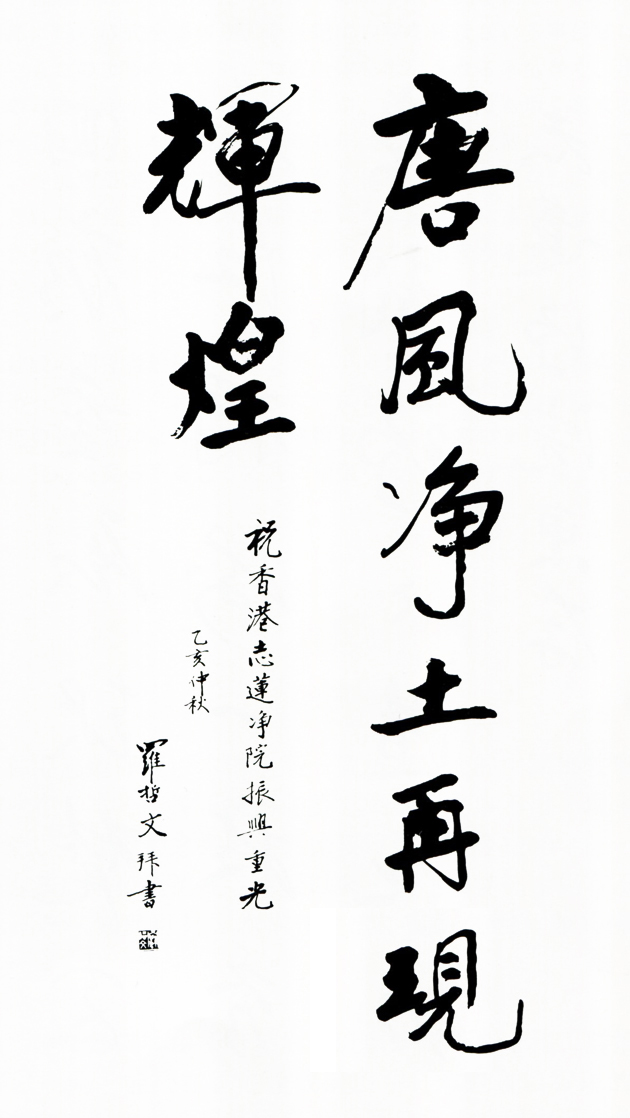 唐風净土再現
輝煌
祝香港志蓮净院振興重光
乙亥仲秋
羅哲文拜書